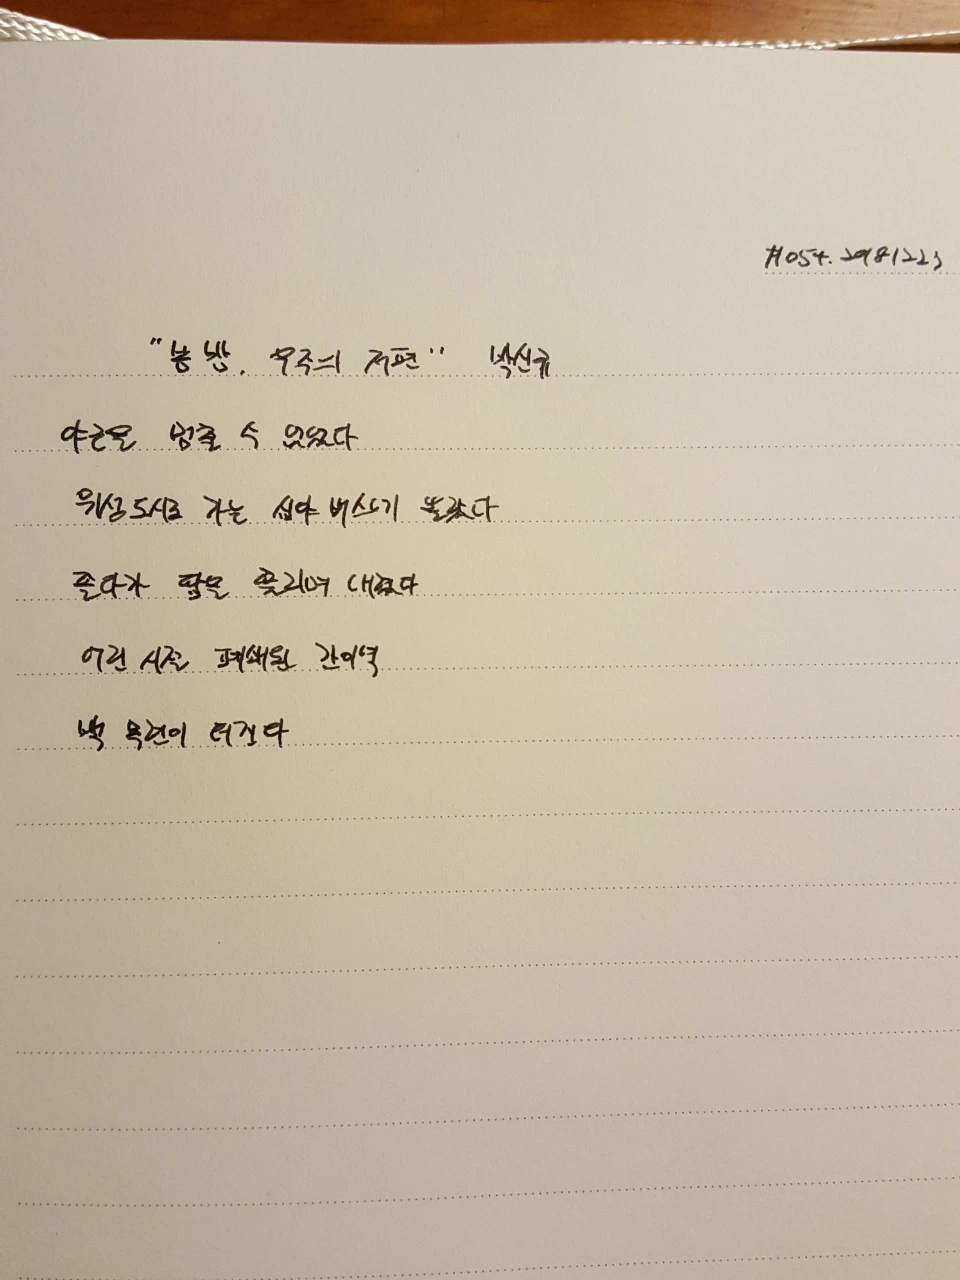 #054. 20181223
"봄밤, 우주의 저편" 박신규
야근은 멈출 수 있었다
위성도시로 가는 심야 버스가 올랐다
졸다가 땀을 흘리며 내렸다
어린 시절 폐쇄된 간이역
백 목련이 터진다